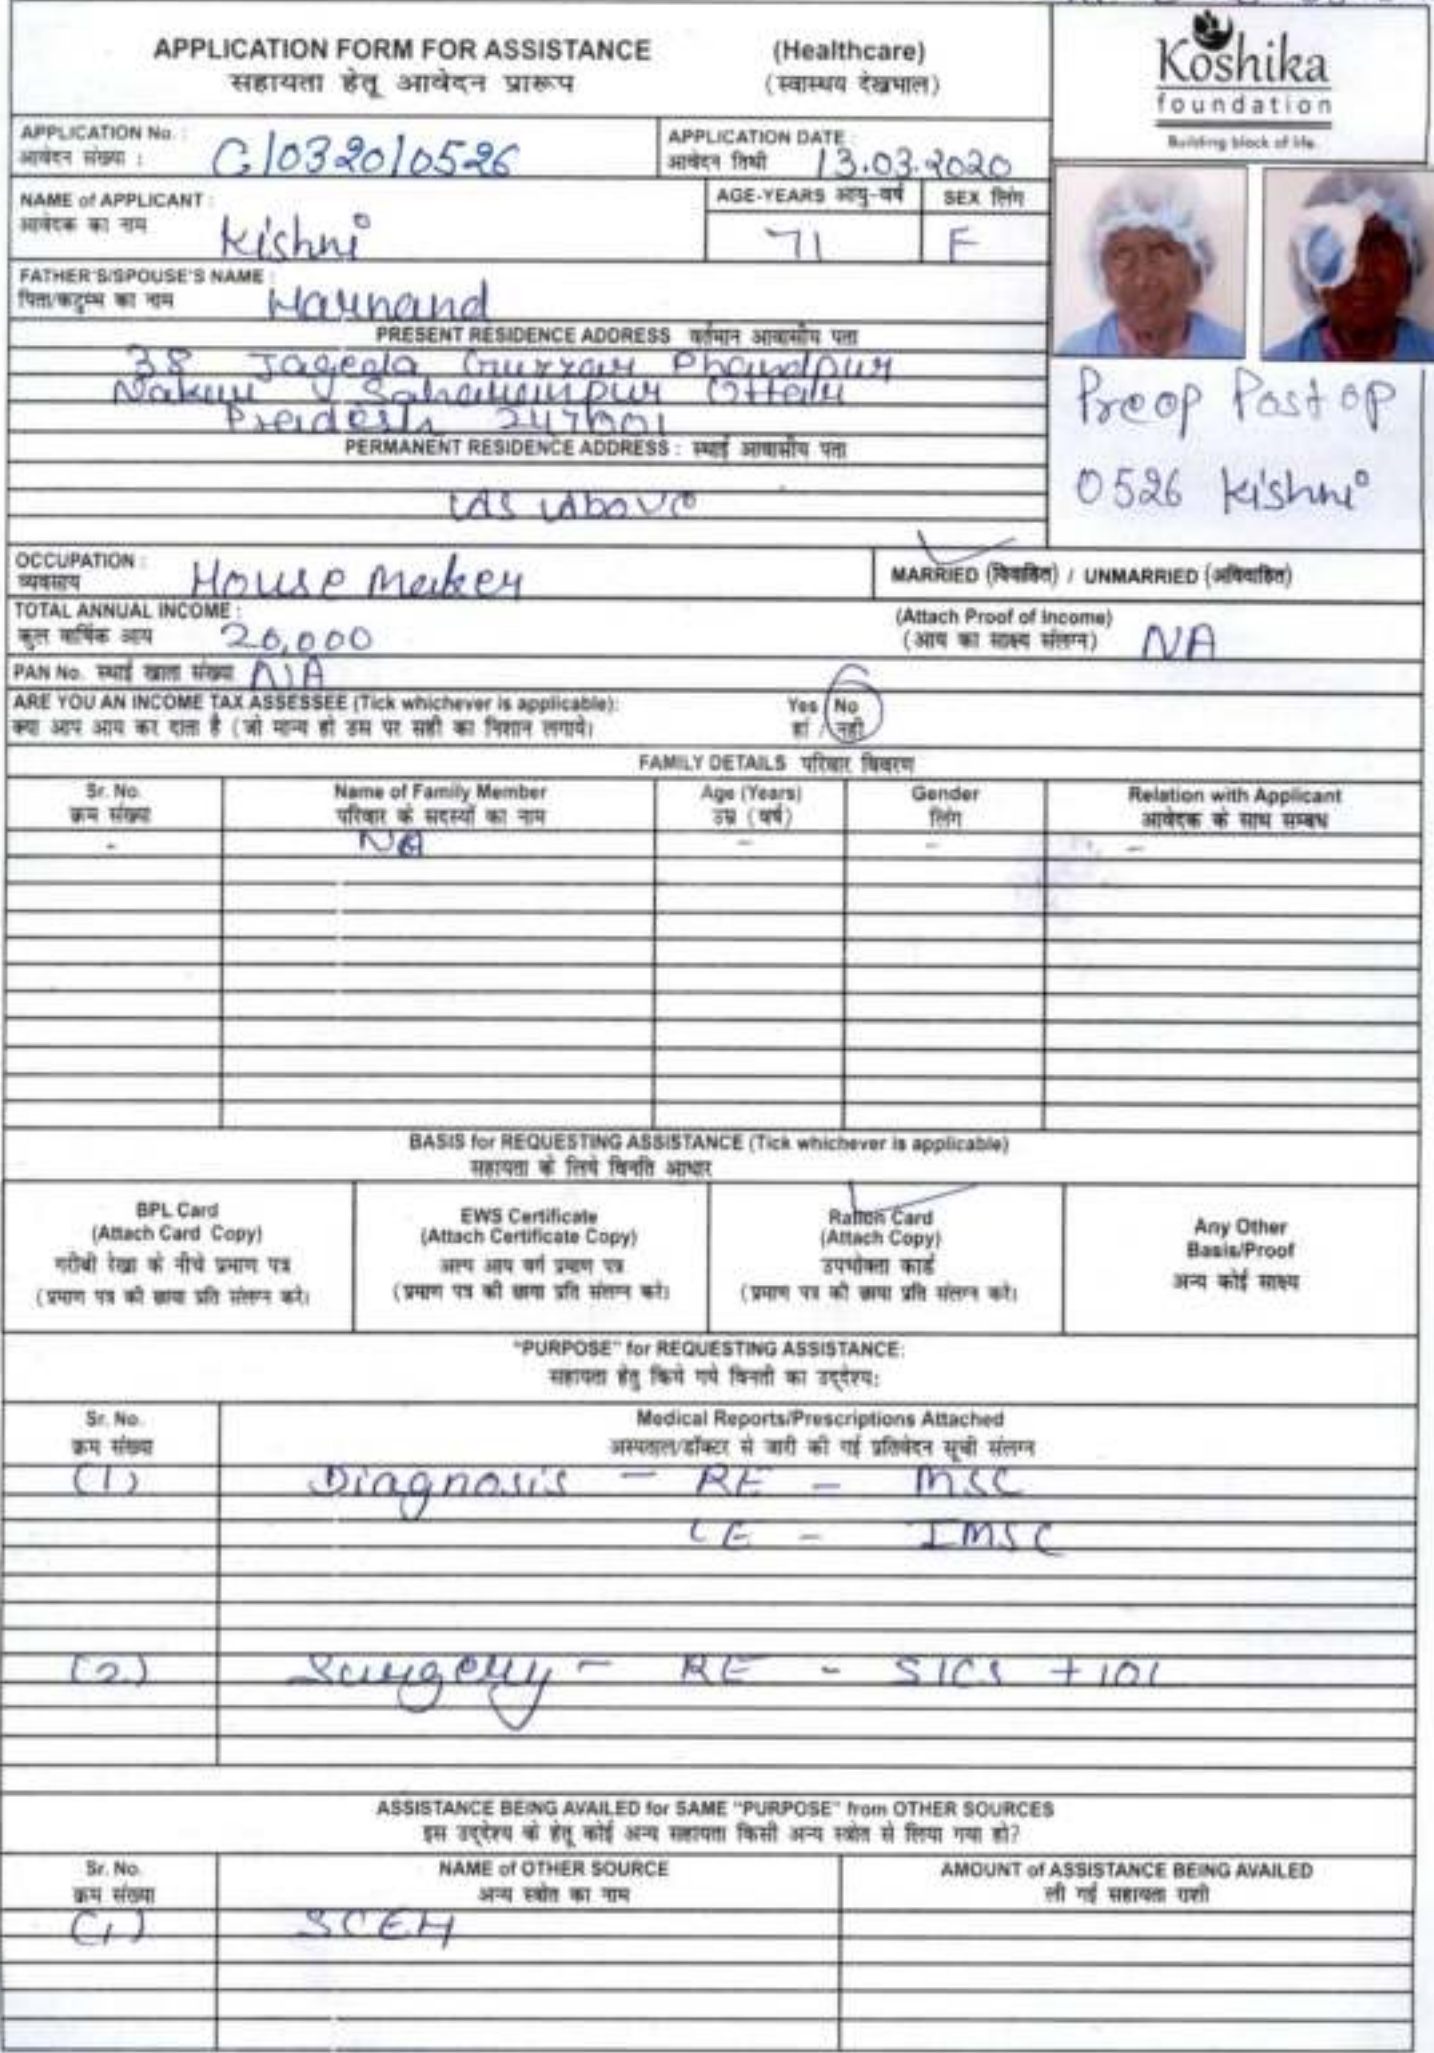 APPLICATION FORM FOR ASSISTANCE (Healthcare)
सहायता हेतू आवेदन प्रारूप (स्वास्थय देखभाल)
Koshika
foundation
Building block of life.
APPLICATION No. :
आवेदन संख्या : C/0320/0526
APPLICATION DATE :
आवेदन तिथी 13.03.2020
NAME of APPLICANT :
आवेदक का नाम Kishni
AGE-YEARS आयु-वर्ष SEX लिंग
71 F
FATHER'S/SPOUSE'S NAME :
पिता/कटुम्भ का नाम Harnand
PRESENT RESIDENCE ADDRESS वर्तमान आवासीय पता
38 Jageda Gurrar Phandpur
Nakur Saharanpur Uttar
Pradesh 247001
Preop Post op
0526 Kishni
PERMANENT RESIDENCE ADDRESS : स्थाई आवासीय पता
As Above
OCCUPATION :
व्यवसाय House Maker
MARRIED (विवाहित) / UNMARRIED (अविवाहित)
TOTAL ANNUAL INCOME :
कुल वार्षिक आय 20,000
(Attach Proof of Income)
(आय का साक्ष्य संलग्न) NA
PAN No. स्थाई खाता संख्या N/A
ARE YOU AN INCOME TAX ASSESSEE (Tick whichever is applicable): Yes / No
क्या आप आय कर दाता है (जो मान्य हो उस पर सही का निशान लगाये। हां / नही
FAMILY DETAILS परिवार विवरण
Sr. No. Name of Family Member Age (Years) Gender Relation with Applicant
क्रम संख्या परिवार के सदस्यों का नाम उम्र (वर्ष) लिंग आवेदक के साथ सम्बध
- NA - - -
BASIS for REQUESTING ASSISTANCE (Tick whichever is applicable)
सहायता के लिये विनति आधार
BPL Card
(Attach Card Copy)
गरीबी रेखा के नीचे प्रमाण पत्र
(प्रमाण पत्र की छाया प्रति संलग्न करे।
EWS Certificate
(Attach Certificate Copy)
अल्प आय वर्ग प्रमाण पत्र
(प्रमाण पत्र की छाया प्रति संलग्न करे।
Ration Card
(Attach Copy)
उपभोक्ता कार्ड
(प्रमाण पत्र की छाया प्रति संलग्न करे।
Any Other
Basis/Proof
अन्य कोई साक्ष्य
"PURPOSE" for REQUESTING ASSISTANCE:
सहायता हेतु किये गये विनती का उद्देश्य:
Sr. No. Medical Reports/Prescriptions Attached
क्रम संख्या अस्पताल/डॉक्टर से जारी की गई प्रतिवेदन सूची संलग्न
(1) Diagnosis - RE - MSC
LE - IMSC
(2) Surgery - RE - SICS + IOL
ASSISTANCE BEING AVAILED for SAME "PURPOSE" from OTHER SOURCES
इस उद्देश्य के हेतू कोई अन्य सहायता किसी अन्य स्त्रोत से लिया गया हो?
Sr. No. NAME of OTHER SOURCE AMOUNT of ASSISTANCE BEING AVAILED
क्रम संख्या अन्य स्त्रोत का नाम ली गई सहायता राशी
(1) SCEH